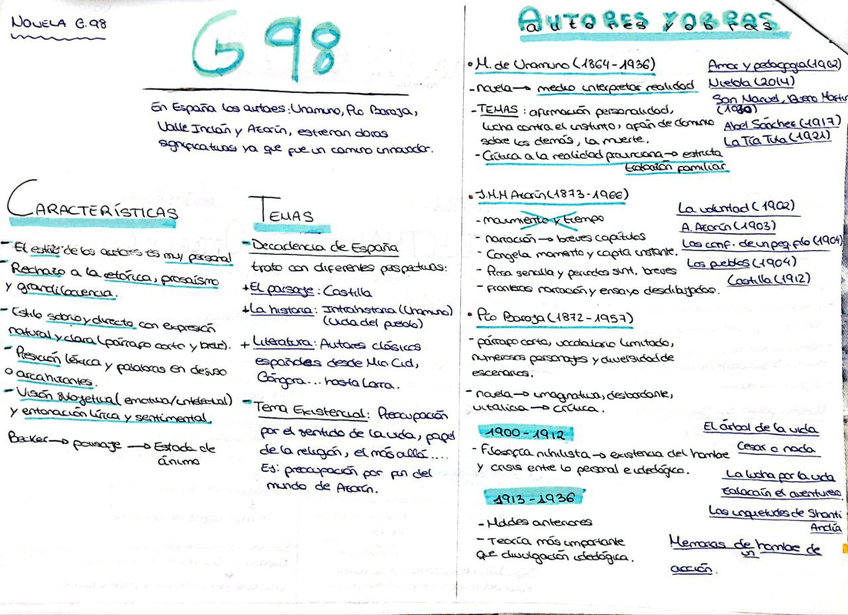 NOVELA G.98
G 98
En España los autores: Unamuno, Pío Baroja,
Valle Inclán y Azorín, estrenan obras
significativas ya que fue un camino innovador.
CARACTERÍSTICAS
- El estilo de los autores es muy personal
- Rechazo a la retórica, prosaísmo
y grandilocuencia.
- Estilo sobrio y directo con expresión
natural y clara (párrafo corto y breve).
- Precisión léxica y palabras en desuso
o arcaizantes.
- Visión subjetiva (emotiva/intelectual)
y entonación lírica y sentimental.
Becker → paisaje → Estado de
ánimo
TEMAS
- Decadencia de España
trata con diferentes perspectivas:
+ El paisaje: Castilla
+ La historia: Intrahistoria (Unamuno)
(vida del pueblo)
+ Literatura: Autores clásicos
españoles desde Mio Cid,
Góngora... hasta Larra.
- Tema Existencial: Preocupación
por el sentido de la vida, papel
de la religión, el más allá....
Ej: preocupación por fin del
mundo de Azorín.
AUTORES Y OBRAS
• M. de Unamuno (1864-1936)
- novela → medio interpretar realidad
- TEMAS: afirmación personalidad,
lucha contra el instinto, afán de dominio
sobre los demás, la muerte.
- Crítica a la realidad provinciana → estricta
educación familiar
Amor y pedagogía (1902)
Niebla (2014)
San Manuel, Bueno Mártir
(1930)
Abel Sánchez (1917)
La Tía Tula (1921)
• J.M.M Azorín (1873-1966)
- movimiento y tiempo
- narración → breves capítulos
- Congela momento y capta instante.
- Prosa sencilla y periodos sint. breves
- Fronteras narración y ensayo desdibujados.
La voluntad (1902)
A. Azorín (1903)
Las conf. de un peq. filo (1904)
Los pueblos (1904)
Castilla (1912)
• Pío Baroja (1872-1957)
- párrafo corto, vocabulario limitado,
numerosos personajes y diversidad de
escenarios.
- novela → imaginativa, desbordante,
vitalista → crítica.
1900-1912
- Filosofía nihilista → existencia del hombre
y crisis entre lo personal e ideológico.
1913-1936
- Moldes anteriores
- Teoría más importante
que divulgación ideológica.
El árbol de la vida
Cesar o nada
La lucha por la vida
Zalacaín el aventurero
Las inquietudes de Shanti
Andía
Memorias de un hombre de
acción.